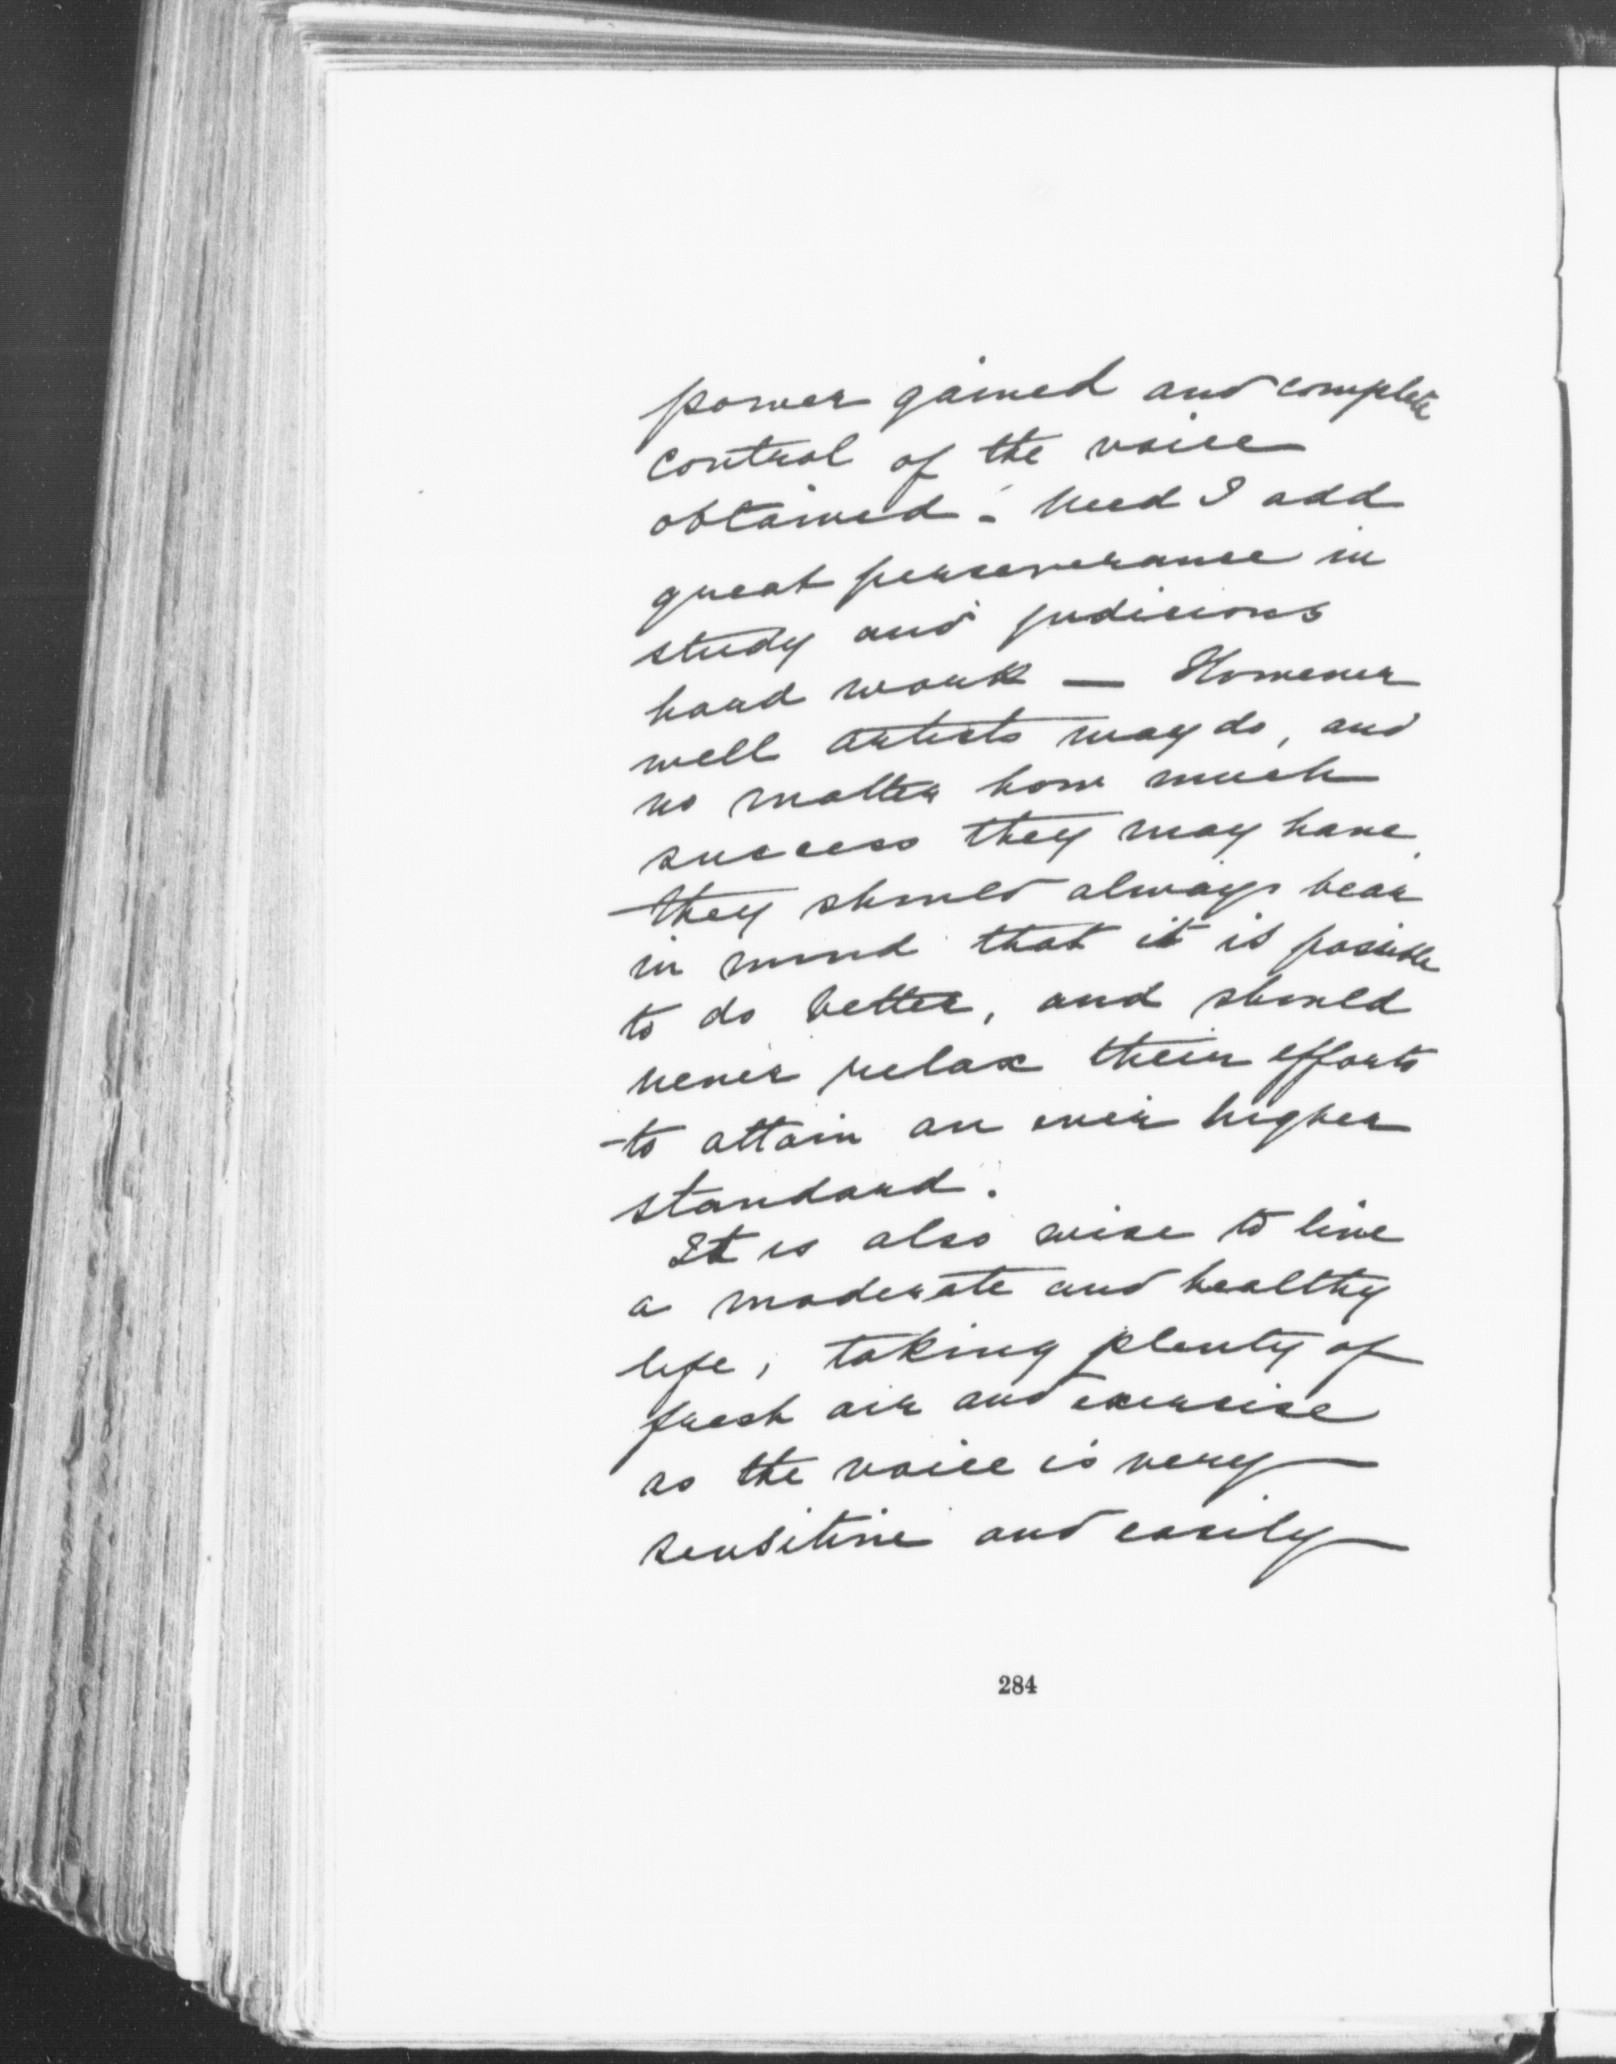 power gained and complete
control of the voice
obtained - Need I add
great perseverance in
study and judicious
hard work — However
well artists may do, and
no matter how much
success they may have,
they should always bear
in mind that it is possible
to do better, and should
never relax their efforts
to attain an ever higher
standard.
It is also wise to live
a moderate and healthy
life, taking plenty of
fresh air and exercise
as the voice is very
sensitive and easily
284